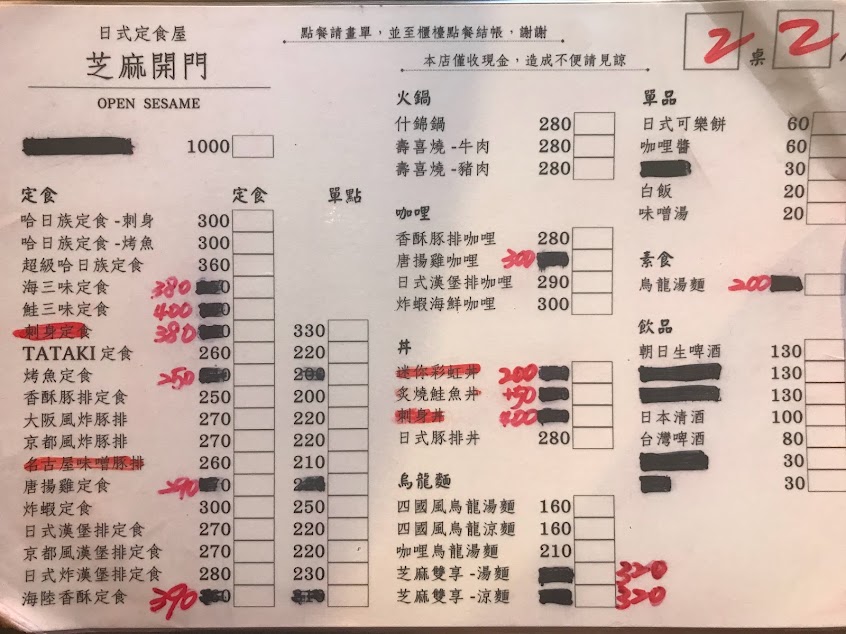 日式定食屋
芝麻開門
OPEN SESAME
點餐請畫單，並至櫃檯點餐結帳，謝謝
本店僅收現金，造成不便請見諒
2 桌 2
1000
定食 定食 單點
哈日族定食-刺身 300
哈日族定食-烤魚 300
超級哈日族定食 360
海三味定食 380
鮭三味定食 400
刺身定食 380 330
TATAKI定食 260 220
烤魚定食 250
香酥豚排定食 250 200
大阪風炸豚排 270 220
京都風炸豚排 270 220
名古屋味噌豚排 260 210
唐揚雞定食 290
炸蝦定食 300 250
日式漢堡排定食 270 220
京都風漢堡排定食 270 220
日式炸漢堡排定食 280 230
海陸香酥定食 390
火鍋
什錦鍋 280
壽喜燒-牛肉 280
壽喜燒-豬肉 280
咖哩
香酥豚排咖哩 280
唐揚雞咖哩 300
日式漢堡排咖哩 290
炸蝦海鮮咖哩 300
丼
迷你彩虹丼 200
炙燒鮭魚丼 +50
刺身丼 400
日式豚排丼 280
烏龍麵
四國風烏龍湯麵 160
四國風烏龍涼麵 160
咖哩烏龍湯麵 210
芝麻雙享-湯麵 320
芝麻雙享-涼麵 320
單品
日式可樂餅 60
咖哩醬 60
30
白飯 20
味噌湯 20
素食
烏龍湯麵 200
飲品
朝日生啤酒 130
130
130
日本清酒 100
台灣啤酒 80
30
30